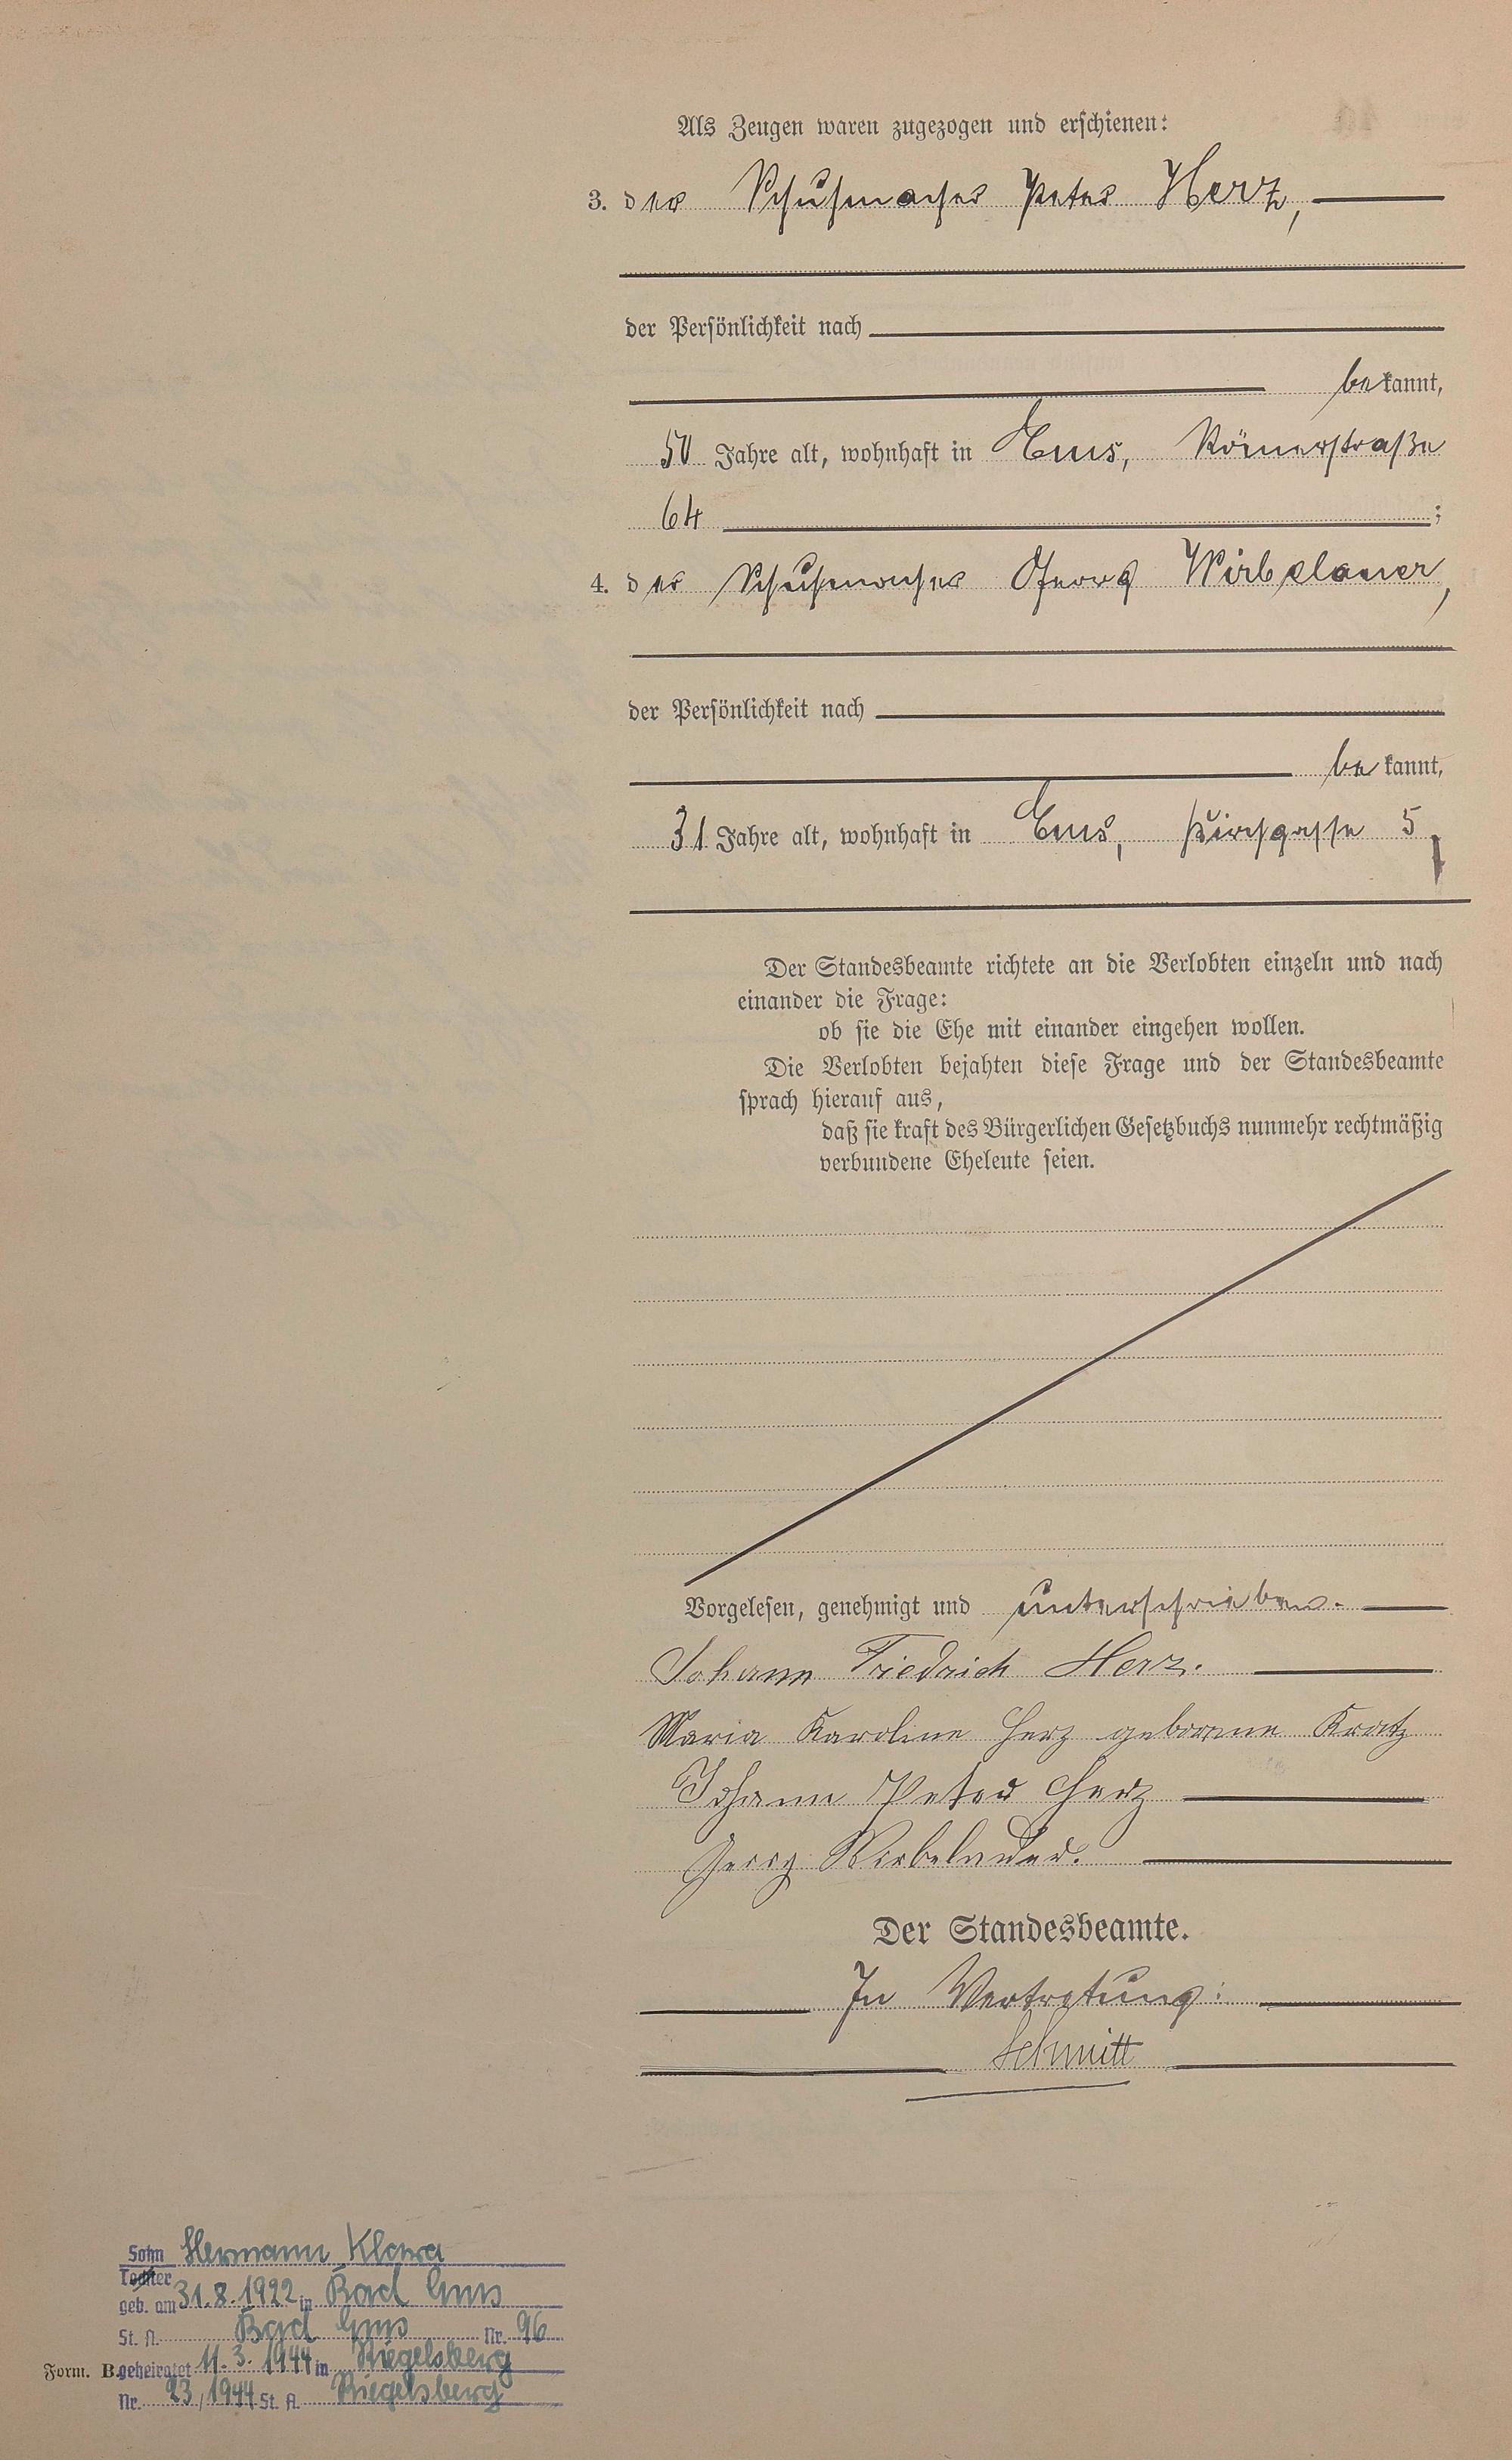 Als Zeugen waren zugezogen und erschienen:
3. der Schuhmacher Peter Herz,
der Persönlichkeit nach
bekannt,
50 Jahre alt, wohnhaft in Ems, Römerstraße
64 ;
4. der Schuhmacher Georg Wirbelauer,
der Persönlichkeit nach
bekannt,
31 Jahre alt, wohnhaft in Ems, Kirchgasse 5.
Der Standesbeamte richtete an die Verlobten einzeln und nach
einander die Frage:
ob sie die Ehe mit einander eingehen wollen.
Die Verlobten bejahten diese Frage und der Standesbeamte
sprach hierauf aus,
daß sie kraft des Bürgerlichen Gesetzbuchs nunmehr rechtmäßig
verbundene Eheleute seien.
Vorgelesen, genehmigt und unterschrieben.
Johann Friedrich Herz.
Maria Karoline Herz geborene Kratz
Johann Peter Herz
Georg Wirbelauer.
Der Standesbeamte.
In Vertretung:
Schmitt
Sohn Hermann Klara
Tochter
geb. am 31.8.1922 in Bad Ems
St. A. Bad Ems Nr. 96
Form. B. geheiratet 11.3.1944 in Riegelsberg
Nr. 23/1944 St. A. Riegelsberg